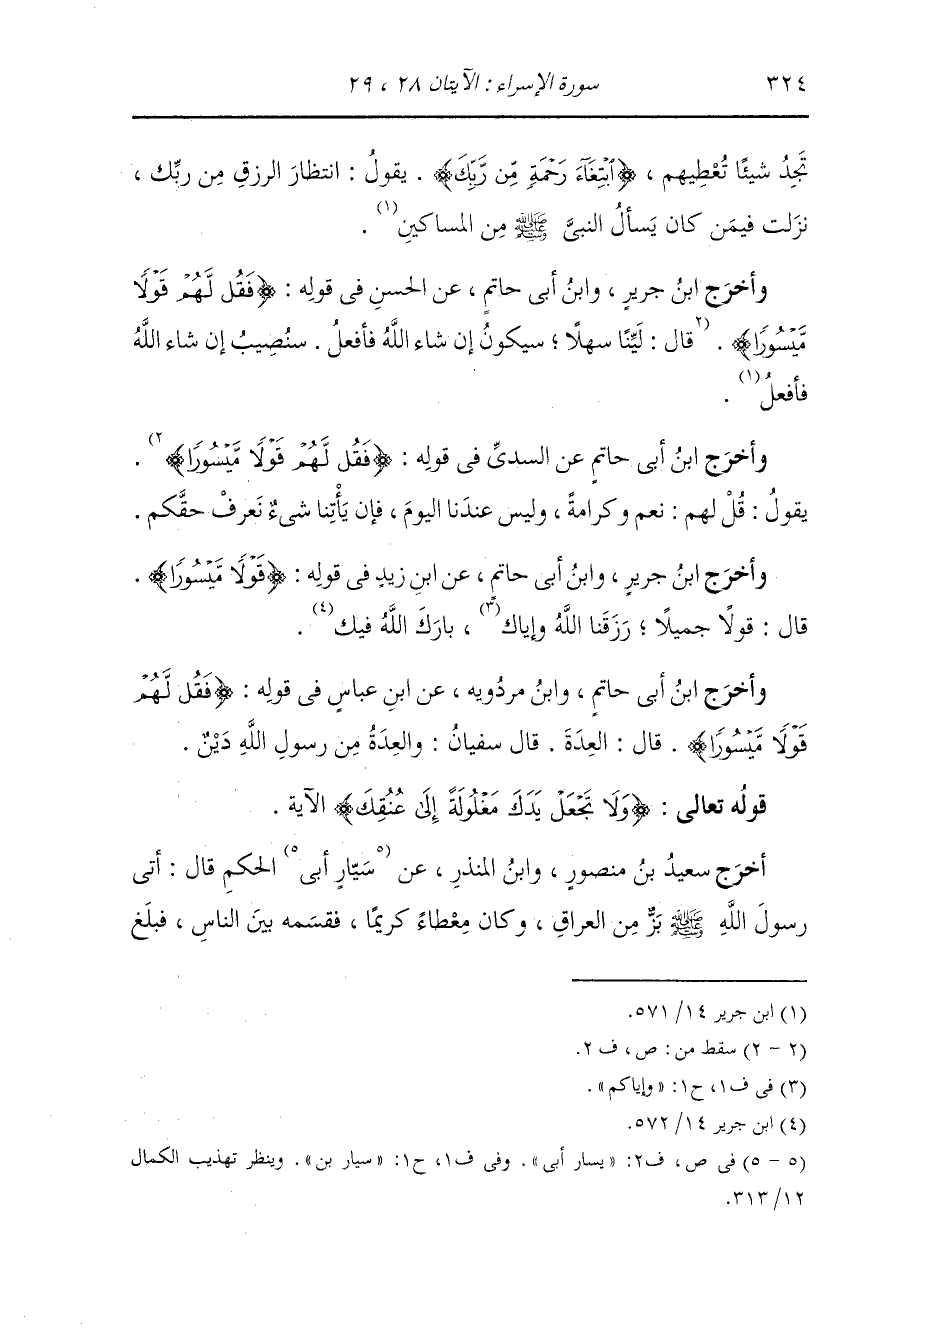 ٣٢٤ سورة الإسراء : الآيتان ٢٨ ، ٢٩
تَجِدُ شيئًا تُعْطِيهم ، ﴿ٱبْتِغَآءَ رَحْمَةٍ مِّن رَّبِّكَ﴾ . يقولُ : انتظارَ الرزقِ مِن ربِّك ،
نزَلت فيمَن كان يَسألُ النبيَّ ﷺ مِن المساكينِ(١) .
وأخرَج ابنُ جريرٍ ، وابنُ أبى حاتمٍ ، عن الحسنِ فى قولِه : ﴿فَقُل لَّهُمْ قَوْلًا
مَّيْسُورًا﴾ . (٢قال : لَيِّنًا سهلًا ؛ سيكونُ إن شاء اللَّهُ فأفعلُ . سنُصِيبُ إن شاء اللَّهُ
فأفعلُ(١) .
وأخرَج ابنُ أبى حاتمٍ عن السدىِّ فى قولِه : ﴿فَقُل لَّهُمْ قَوْلًا مَّيْسُورًا﴾٢) .
يقولُ : قُلْ لهم : نعم وكرامةً ، وليس عندَنا اليومَ ، فإن يَأْتِنا شىءٌ نَعرفْ حقَّكم .
وأخرَج ابنُ جريرٍ ، وابنُ أبى حاتمٍ ، عن ابنِ زيدٍ فى قولِه : ﴿قَوْلًا مَّيْسُورًا﴾ .
قال : قولًا جميلًا ؛ رَزَقَنا اللَّهُ وإياك(٣) ، بارَكَ اللَّهُ فيك(٤) .
وأخرَج ابنُ أبى حاتمٍ ، وابنُ مردُويه ، عن ابنِ عباسٍ فى قولِه : ﴿فَقُل لَّهُمْ
قَوْلًا مَّيْسُورًا﴾ . قال : العِدَةَ . قال سفيانُ : والعِدَةُ مِن رسولِ اللَّهِ دَيْنٌ .
قولُه تعالى : ﴿وَلَا تَجْعَلْ يَدَكَ مَغْلُولَةً إِلَىٰ عُنُقِكَ﴾ الآية .
أخرَج سعيدُ بنُ منصورٍ ، وابنُ المنذرِ ، عن (٥سَيّارٍ أبى٥) الحكمِ قال : أتى
رسولَ اللَّهِ ﷺ بَزٌّ مِن العراقِ ، وكان مِعْطاءً كريمًا ، فقسَمه بينَ الناسِ ، فبلَغ
(١) ابن جرير ١٤ /٥٧١.
(٢ - ٢) سقط من : ص ، ف ٢.
(٣) فى ف١ ، ح١ : «وإياكم» .
(٤) ابن جرير ١٤ /٥٧٢.
(٥ - ٥) فى ص ، ف٢ : «يسار أبى» . وفى ف١ ، ح١ : «سيار بن» . وينظر تهذيب الكمال
١٢ /٣١٣.